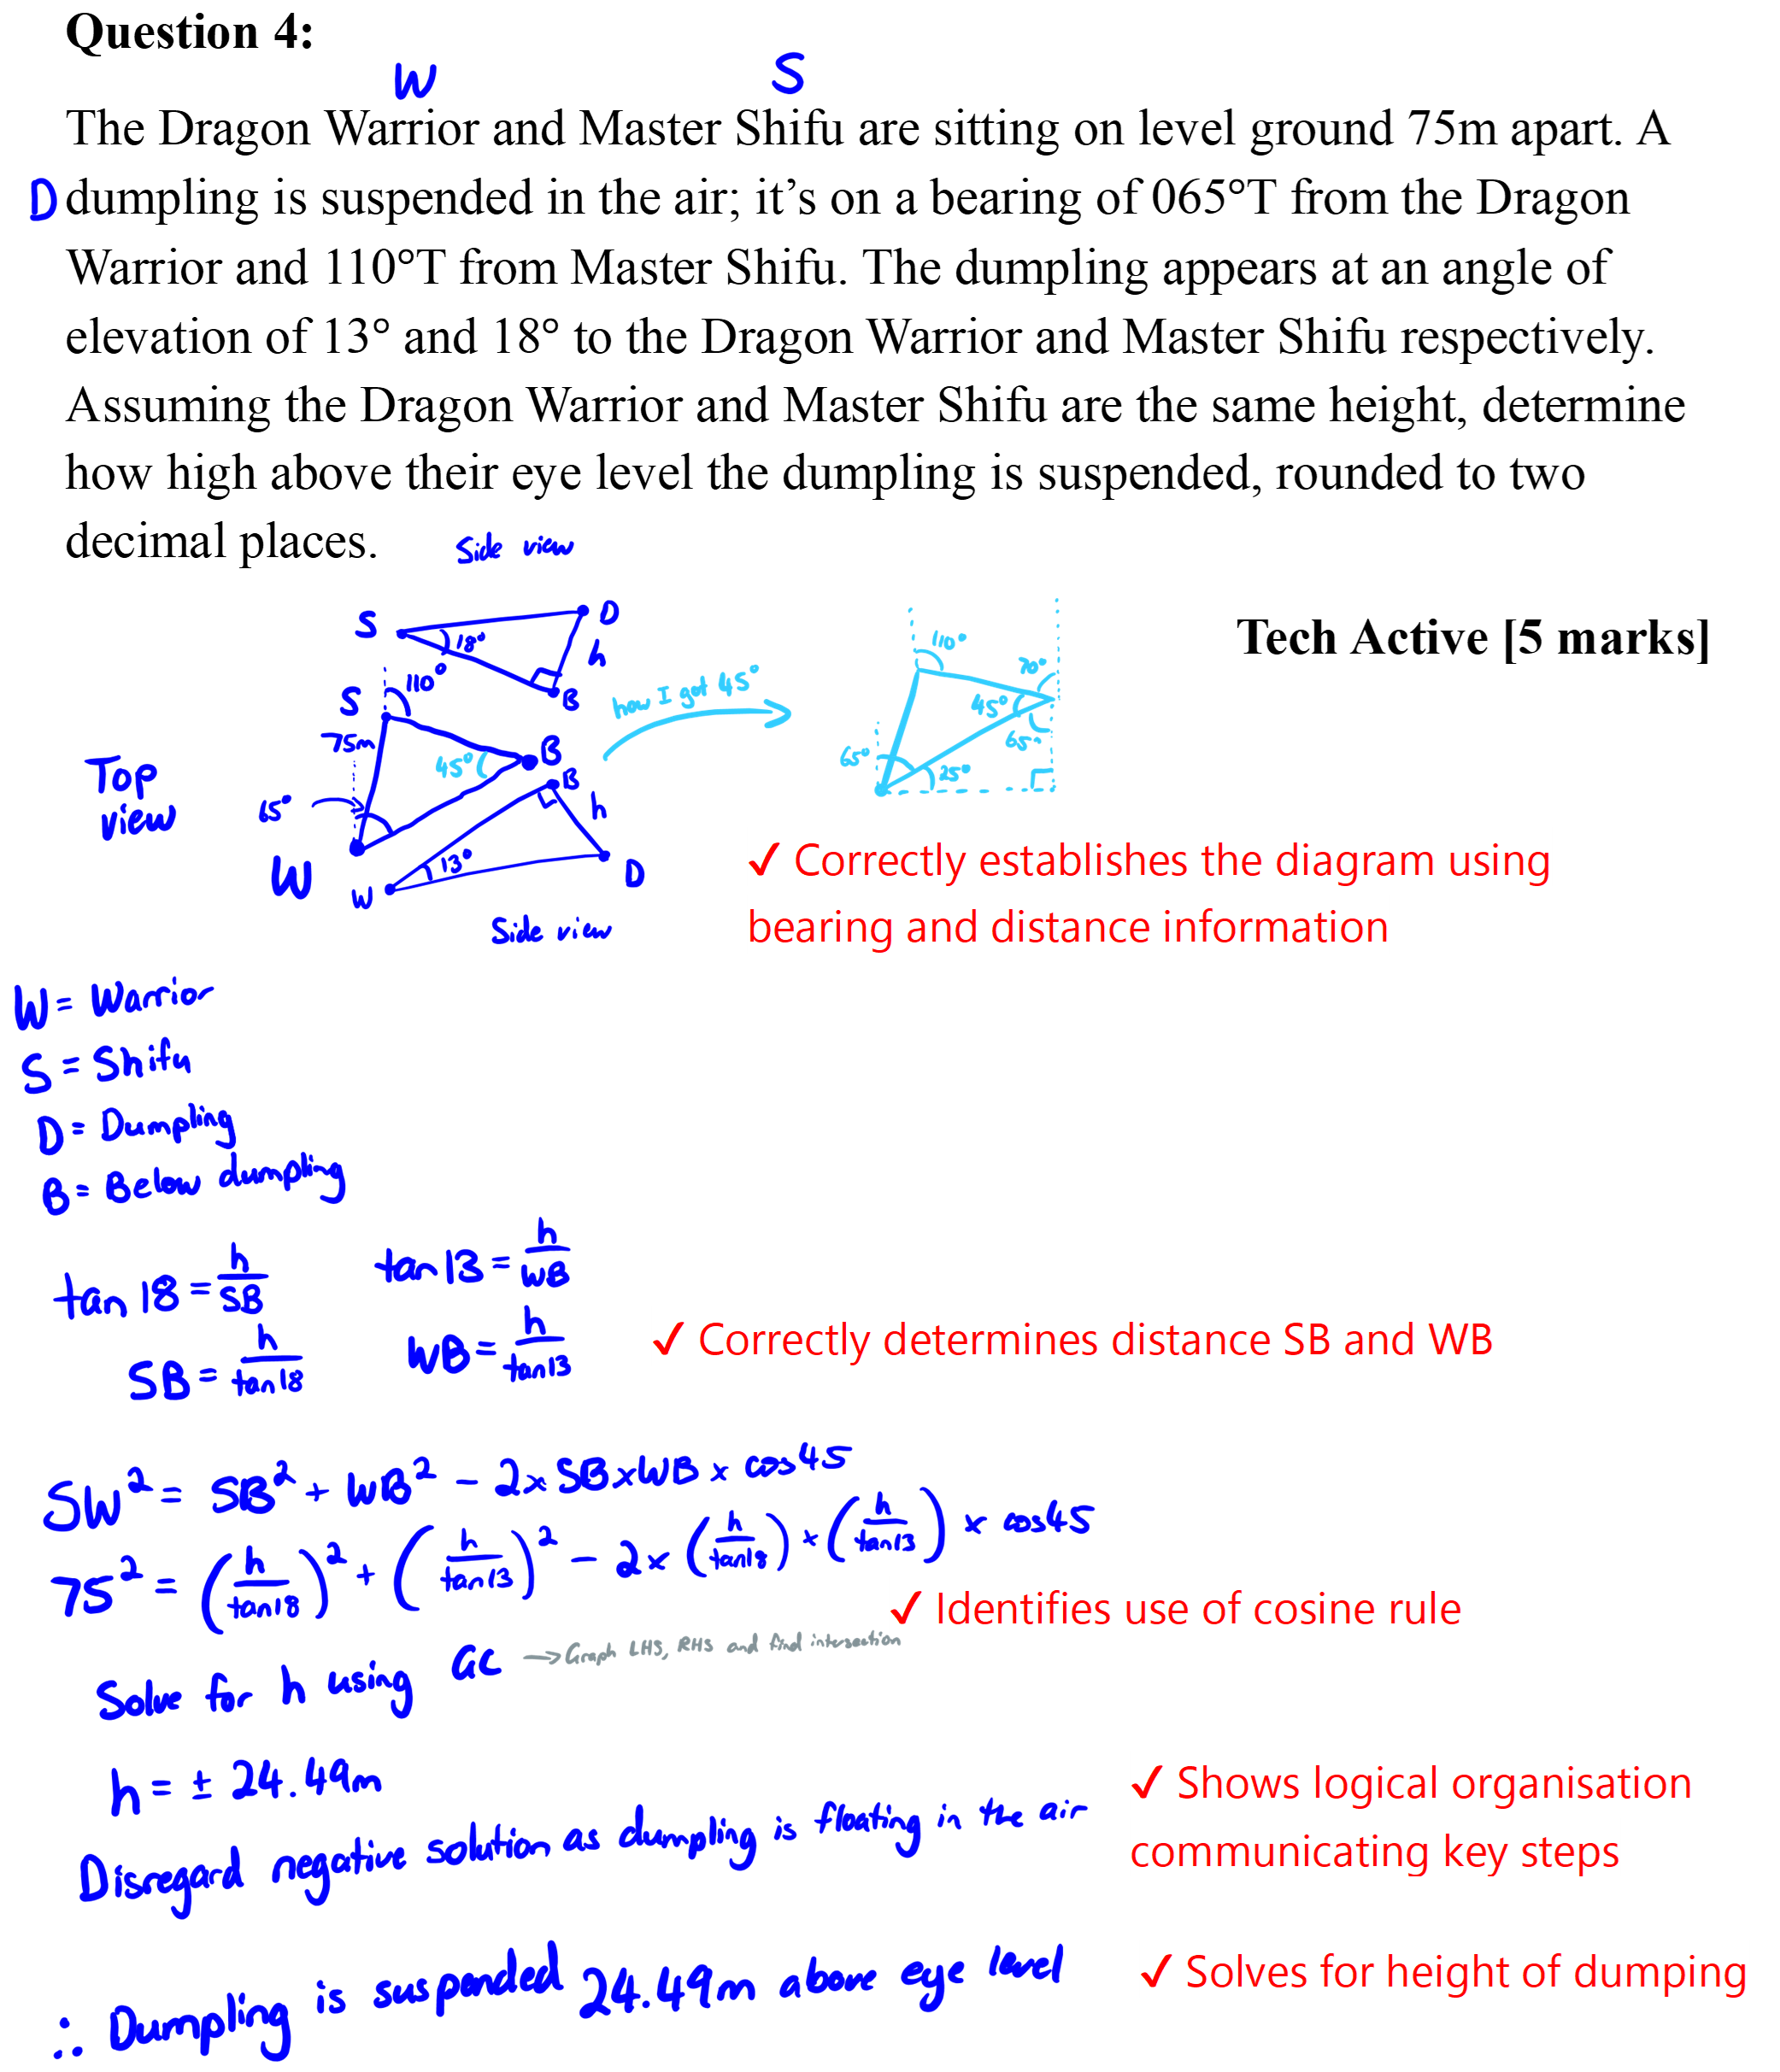 Question 4:
W S
The Dragon Warrior and Master Shifu are sitting on level ground 75m apart. A
D dumpling is suspended in the air; it’s on a bearing of 065°T from the Dragon
Warrior and 110°T from Master Shifu. The dumpling appears at an angle of
elevation of 13° and 18° to the Dragon Warrior and Master Shifu respectively.
Assuming the Dragon Warrior and Master Shifu are the same height, determine
how high above their eye level the dumpling is suspended, rounded to two
decimal places.
Side view
Tech Active [5 marks]
S 18° D h B
S 110° 75m 45° B
65° W
Top
view
B h 13° W D
Side view
how I got 45°
110° 70° 45° 65° 65° 25°
✓ Correctly establishes the diagram using
bearing and distance information
W = Warrior
S = Shifu
D = Dumpling
B = Below dumpling
tan 18 = h/SB tan 13 = h/WB
SB = h/tan18 WB = h/tan13
✓ Correctly determines distance SB and WB
SW² = SB² + WB² - 2 x SB x WB x cos45
75² = (h/tan18)² + (h/tan13)² - 2 x (h/tan18) x (h/tan13) x cos45
✓ Identifies use of cosine rule
Solve for h using GC → Graph LHS, RHS and find intersection
h = ± 24.49m
✓ Shows logical organisation
communicating key steps
Disregard negative solution as dumpling is floating in the air
∴ Dumpling is suspended 24.49m above eye level
✓ Solves for height of dumping